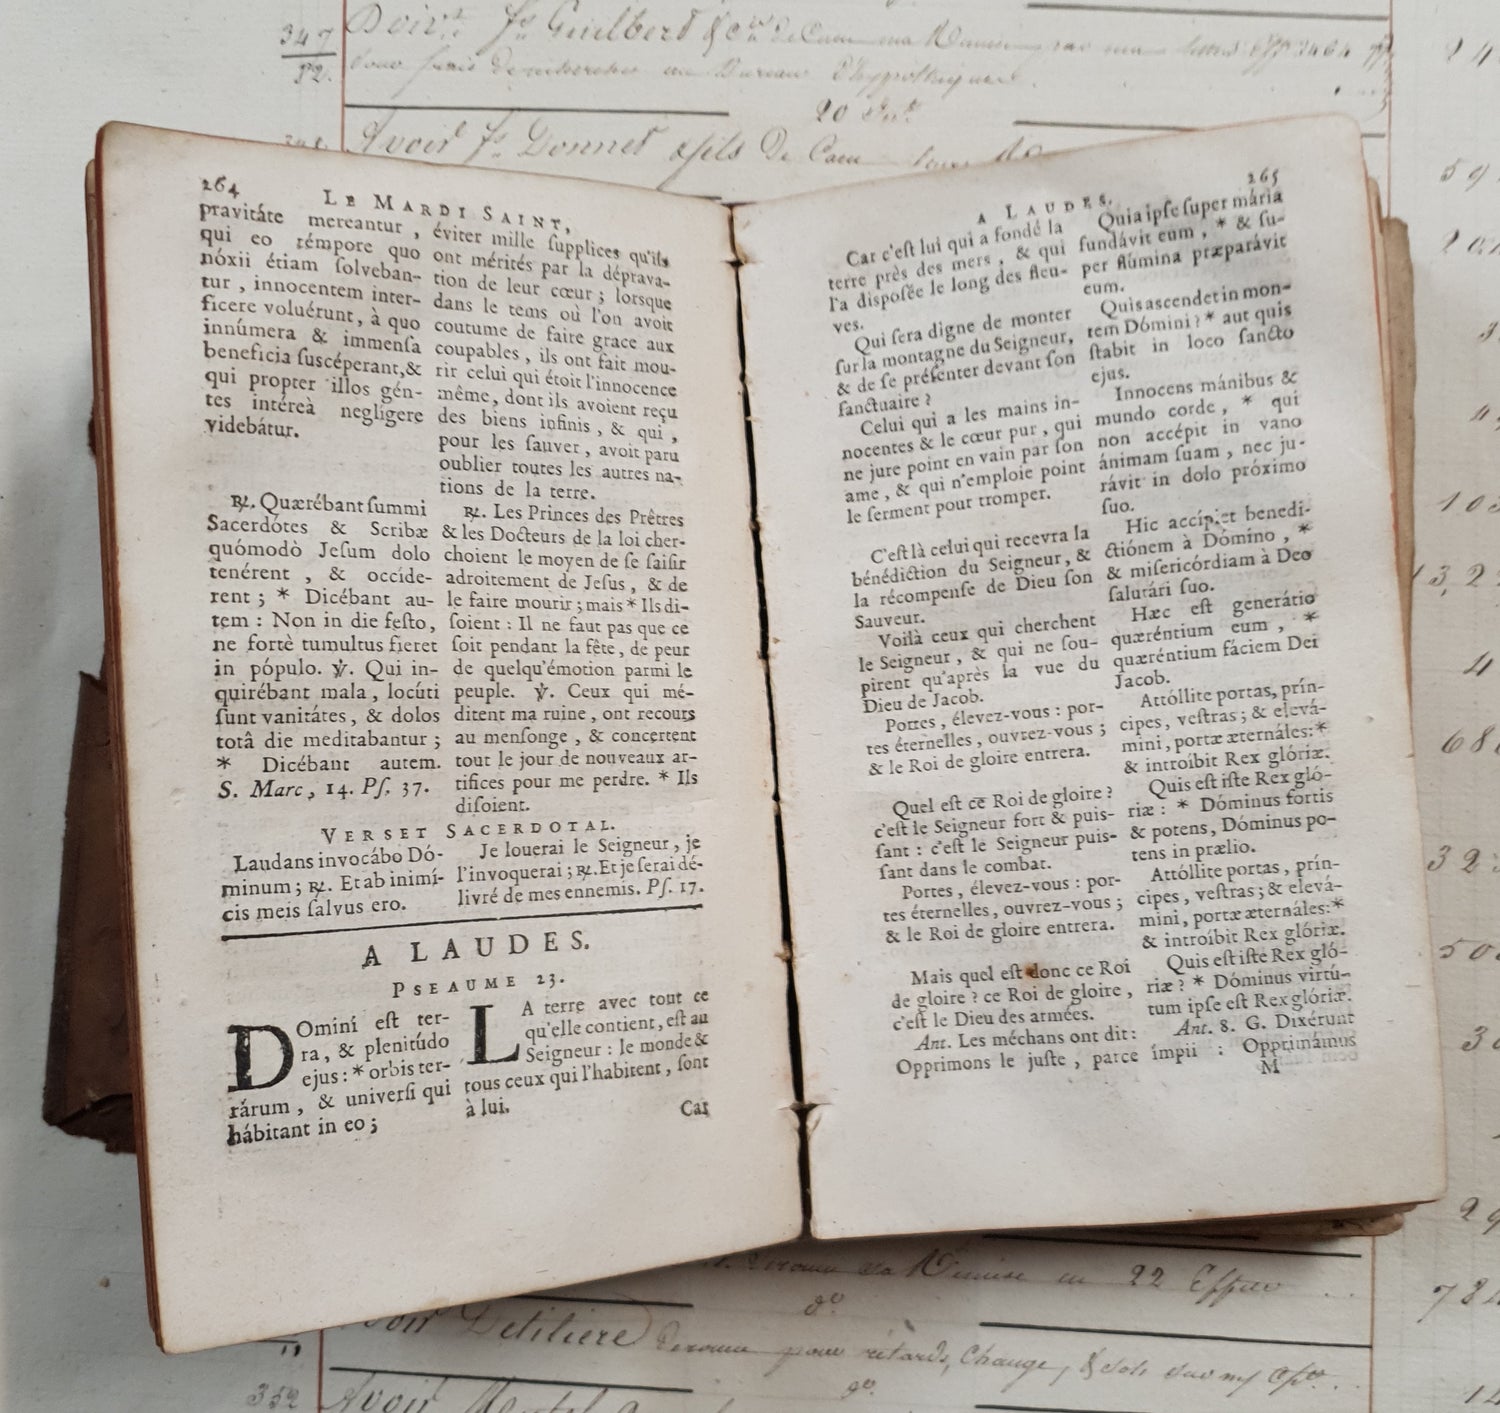 347
52.
20
Avoir Donnet & fils De Caen
264
LE MARDI SAINT,
pravitáte mereantur,
qui eo témpore quo
nóxii étiam ſolveban-
tur, innocentem inter-
ficere voluérunt, à quo
innúmera & immenſa
beneficia ſuscéperant, &
qui propter illos gén-
tes intéreà negligere
videbátur.
éviter mille ſupplices qu'ils
ont mérités par la déprava-
tion de leur cœur; lorsque
dans le tems où l'on avoit
coutume de faire grace aux
coupables, ils ont fait mou-
rir celui qui étoit l'innocence
même, dont ils avoient reçu
des biens infinis, & qui,
pour les ſauver, avoit paru
oublier toutes les autres na-
tions de la terre.
℟. Quærébant ſummi
Sacerdótes & Scribæ
quómodò Jeſum dolo
tenérent, & occíde-
rent; * Dicébant au-
tem: Non in die feſto,
ne fortè tumultus fieret
in pópulo. ℣. Qui in-
quirébant mala, locúti
ſunt vanitátes, & dolos
totâ die meditabantur;
* Dicébant autem.
S. Marc, 14. Pſ. 37.
℟. Les Princes des Prêtres
& les Docteurs de la loi cher-
choient le moyen de ſe ſaiſir
adroitement de Jeſus, & de
le faire mourir; mais * Ils di-
ſoient: Il ne faut pas que ce
ſoit pendant la fête, de peur
de quelqu'émotion parmi le
peuple. ℣. Ceux qui mé-
ditent ma ruine, ont recours
au menſonge, & concertent
tout le jour de nouveaux ar-
tifices pour me perdre. * Ils
diſoient.
VERSET SACERDOTAL.
Laudans invocábo Dó-
minum; ℟. Et ab inimí-
cis meis ſalvus ero.
Je louerai le Seigneur, je
l'invoquerai; ℟. Et je ſerai dé-
livré de mes ennemis. Pſ. 17.
A LAUDES.
PSEAUME 23.
DOmíni eſt ter-
ra, & plenitúdo
ejus: * orbis ter-
rárum, & univerſi qui
hábitant in eo;
LA terre avec tout ce
qu'elle contient, eſt au
Seigneur: le monde &
tous ceux qui l'habitent, ſont
à lui.
Car
265
A LAUDES.
Car c'eſt lui qui a fondé la
terre près des mers, & qui
l'a diſpoſée le long des fleu-
ves.
Qui ſera digne de monter
ſur la montagne du Seigneur,
& de ſe préſenter devant ſon
ſanctuaire?
Celui qui a les mains in-
nocentes & le cœur pur, qui
ne jure point en vain par ſon
ame, & qui n'emploie point
le ſerment pour tromper.
C'eſt là celui qui recevra la
bénédiction du Seigneur, &
la récompenſe de Dieu ſon
Sauveur.
Voilà ceux qui cherchent
le Seigneur, & qui ne ſou-
pirent qu'après la vue du
Dieu de Jacob.
Portes, élevez-vous: por-
tes éternelles, ouvrez-vous;
& le Roi de gloire entrera.
Quel eſt ce Roi de gloire?
c'eſt le Seigneur fort & puis-
ſant: c'eſt le Seigneur puis-
ſant dans le combat.
Portes, élevez-vous: por-
tes éternelles, ouvrez-vous;
& le Roi de gloire entrera.
Mais quel eſt donc ce Roi
de gloire? ce Roi de gloire,
c'eſt le Dieu des armées.
Ant. Les méchans ont dit:
Opprimons le juſte, parce
Quia ipſe ſuper mária
fundávit eum, * & ſu-
per flúmina præparávit
eum.
Quis ascendet in mon-
tem Dómini? * aut quis
ſtabit in loco ſancto
ejus.
Innocens mánibus &
mundo corde, * qui
non accépit in vano
ánimam ſuam, nec ju-
rávit in dolo próximo
ſuo.
Hic accípiet benedi-
ctiónem à Dómino, *
& miſericórdiam à Deo
ſalutári ſuo.
Hæc eſt generátio
quæréntium eum, *
quæréntium fáciem Dei
Jacob.
Attóllite portas, prín-
cipes, veſtras; & elevá-
mini, portæ æternáles: *
& introíbit Rex glóriæ.
Quis eſt iſte Rex gló-
riæ: * Dóminus fortis
& potens, Dóminus po-
tens in prælio.
Attóllite portas, prín-
cipes, veſtras; & elevá-
mini, portæ æternáles: *
& introíbit Rex glóriæ.
Quis eſt iſte Rex gló-
riæ? * Dóminus virtú-
tum ipſe eſt Rex glóriæ.
Ant. 8. G. Dixérunt
ímpii: Opprimámus
M
22
352 Avoir